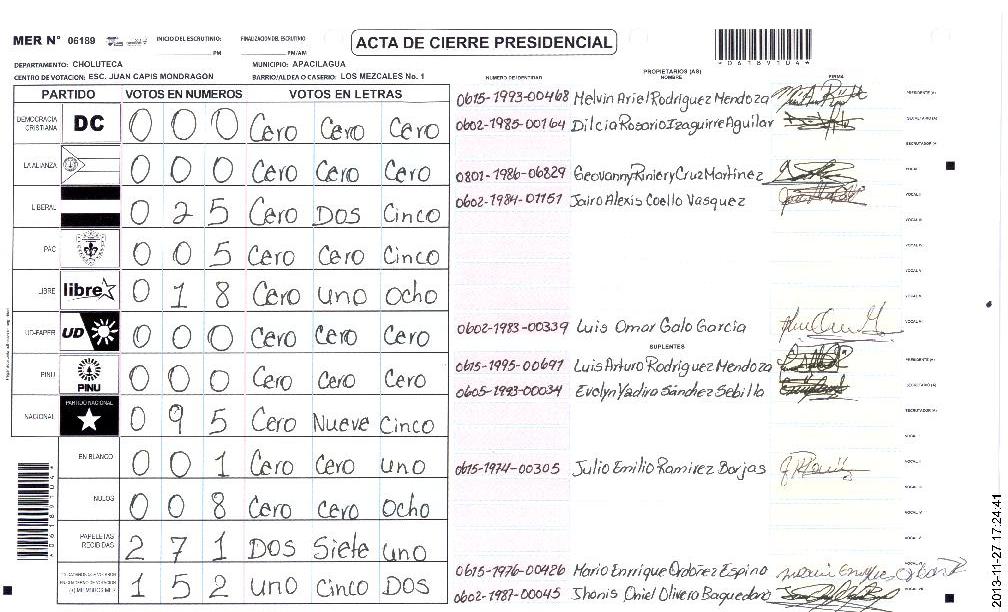 MER N° 06189 INICIO DEL ESCRUTINIO: PM FINALIZACION DEL ESCRUTINIO PM/AM
ACTA DE CIERRE PRESIDENCIAL
*06189104*
DEPARTAMENTO: CHOLUTECA MUNICIPIO: APACILAGUA
CENTRO DE VOTACION: ESC. JUAN CAPIS MONDRAGON BARRIO/ALDEA O CASERIO: LOS MEZCALES No. 1
PARTIDO VOTOS EN NUMEROS VOTOS EN LETRAS
DEMOCRACIA CRISTIANA DC 0 0 0 Cero Cero Cero
LA ALIANZA 0 0 0 Cero Cero Cero
LIBERAL 0 2 5 Cero Dos Cinco
PAC 0 0 5 Cero Cero Cinco
LIBRE libre 0 1 8 Cero uno ocho
UD-FAPER UD 0 0 0 Cero Cero Cero
PINU PINU 0 0 0 Cero Cero Cero
NACIONAL PARTIDO NACIONAL 0 9 5 Cero Nueve Cinco
EN BLANCO 0 0 1 Cero Cero uno
NULOS 0 0 8 Cero Cero ocho
PAPELETAS RECIBIDAS 2 7 1 Dos Siete uno
1 5 2 uno Cinco Dos
NUMERO DE IDENTIDAD PROPIETARIOS (AS) NOMBRE FIRMA
0615-1993-00468 Melvin Ariel Rodriguez Mendoza PRESIDENTE (A)
0602-1985-00164 Dilcia Rosario Izaguirre Aguilar SECRETARIO (A)
ESCRUTADOR (A)
0801-1986-06829 Geovanny Riniery Cruz Martinez VOCAL I
0602-1984-01151 Jairo Alexis Coello Vasquez VOCAL II
VOCAL III
VOCAL IV
VOCAL V
0602-1983-00339 Luis Omar Galo Garcia
SUPLENTES
0615-1995-00697 Luis Arturo Rodriguez Mendoza PRESIDENTE (A)
0605-1993-00034 Evelyn Yadira Sánchez Sebilla SECRETARIO (A)
ESCRUTADOR (A)
0615-1974-00305 Julio Emilio Ramirez Borjas
0615-1976-00426 Mario Enrrique Ordoñez Espino
0602-1987-00045 Jhonis Oniel Olivera Baquedano
*06189104*
2013-11-27 17:24:41